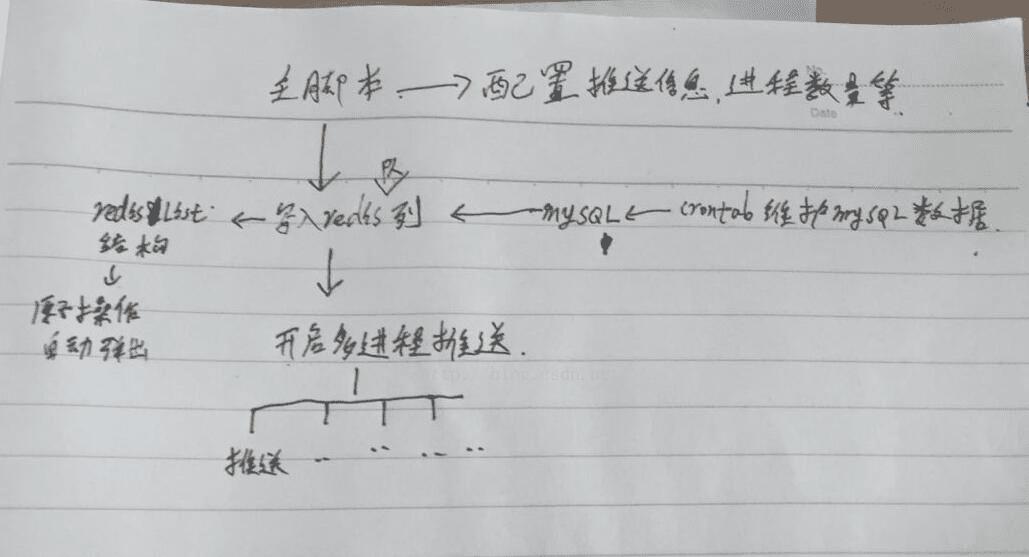 主脚本 → 配置推送信息,进程数量等.
No.
Date
队
redis List ← 写入redis列 ← mysQL ← crontab维护mysQL数据.
结构
原子操作
自动弹出
开启多进程推送.
http://blog.csdn.net
推送 .. .. .. ..